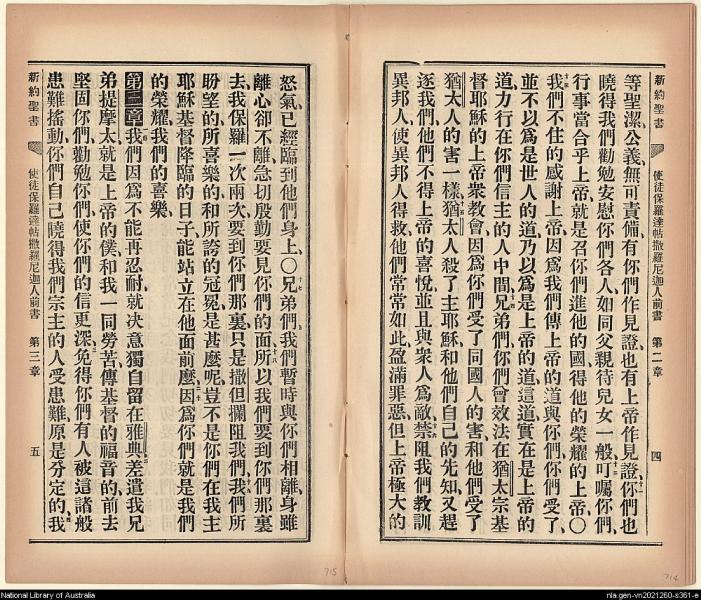 新約聖書 使徒保羅達帖撒羅尼迦人前書 第二章 四
等聖潔、公義、無可責備、有你們作見證、也有上帝作見證、你們也
曉得我們勸勉安慰你們各人、如同父親待兒女一般、叮囑你們、
行事當合乎上帝、就是召你們進他的國、得他的榮耀的上帝、〇
我們不住的感謝上帝、因為我們傳上帝的道與你們、你們受了、
並不以為是世人的道、乃以為是上帝的道、這道實在是上帝的
道、力行在你們信主的人中間、兄弟們、你們會效法在猶太宗基
督耶穌的上帝衆教會、因為你們受了同國人的害、和他們受了
猶太人的害一樣、猶太人殺了主耶穌、和他們自己的先知、又趕
逐我們、他們不得上帝的喜悅、並且與衆人為敵、禁阻我們教訓
異邦人、使異邦人得救、他們常常如此、盈滿罪惡、但上帝極大的
怒氣、已經臨到他們身上、〇兄弟們、我們暫時與你們相離、身雖
離、心卻不離、急切殷勤、要見你們的面、所以我們要到你們那裏
去、我保羅一次兩次、要到你們那裏、只是撒但攔阻我們、我們所
盼望的、所喜樂的、和所誇的冠冕、是甚麼呢、豈不是你們在我主
耶穌基督降臨的日子、能站立在他面前麼、因為你們就是我們
的榮耀、我們的喜樂、
第三章 我們因為不能再忍耐、就決意獨自留在雅典、差遣我兄
弟提摩太、就是上帝的僕、和我一同勞苦傳基督的福音的、前去
堅固你們、勸勉你們、使你們的信更深、免得你們有人被這諸般
患難搖動、你們自己曉得我們宗主的人受患難、原是分定的、我
新約聖書 使徒保羅達帖撒羅尼迦人前書 第三章 五
715
714
National Library of Australia
nla.gen-vn2021260-s361-e